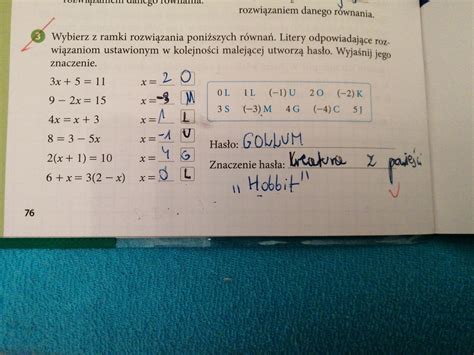 rozwiązaniem danego równania.
rozwiązaniem danego równania.
3 Wybierz z ramki rozwiązania poniższych równań. Litery odpowiadające roz-
wiązaniom ustawionym w kolejności malejącej utworzą hasło. Wyjaśnij jego
znaczenie.
3x + 5 = 11 x = 2 O
9 − 2x = 15 x = -3 M
4x = x + 3 x = 1 L
8 = 3 − 5x x = -1 U
2(x + 1) = 10 x = 4 G
6 + x = 3(2 − x) x = 0 L
0 L 1 L (−1) U 2 O (−2) K
3 S (−3) M 4 G (−4) C 5 J
Hasło: GOLLUM
Znaczenie hasła: Kreatura z powieści
„Hobbit"
76